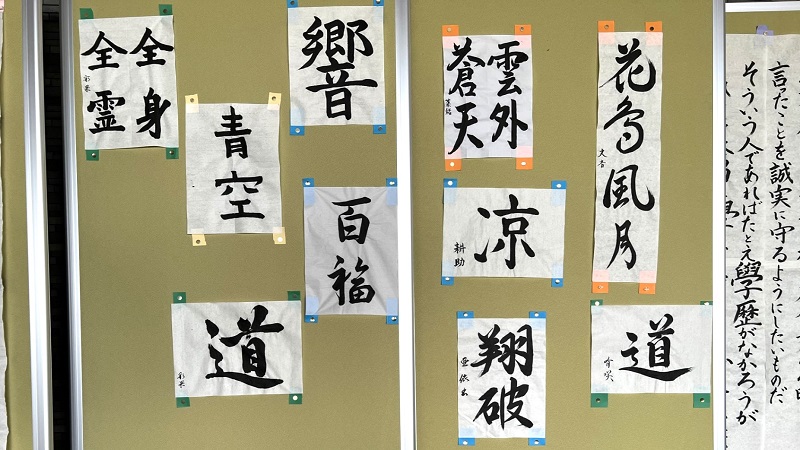 全身
全霊
彩葉
響
青空
百福
道
彩葉
雲外
蒼天
花鳥風月
文香
凉
耕助
翔破
道
言ったことを誠実に守るようにしたいものだ
そういう人であればたとえ學歴がなかろうが